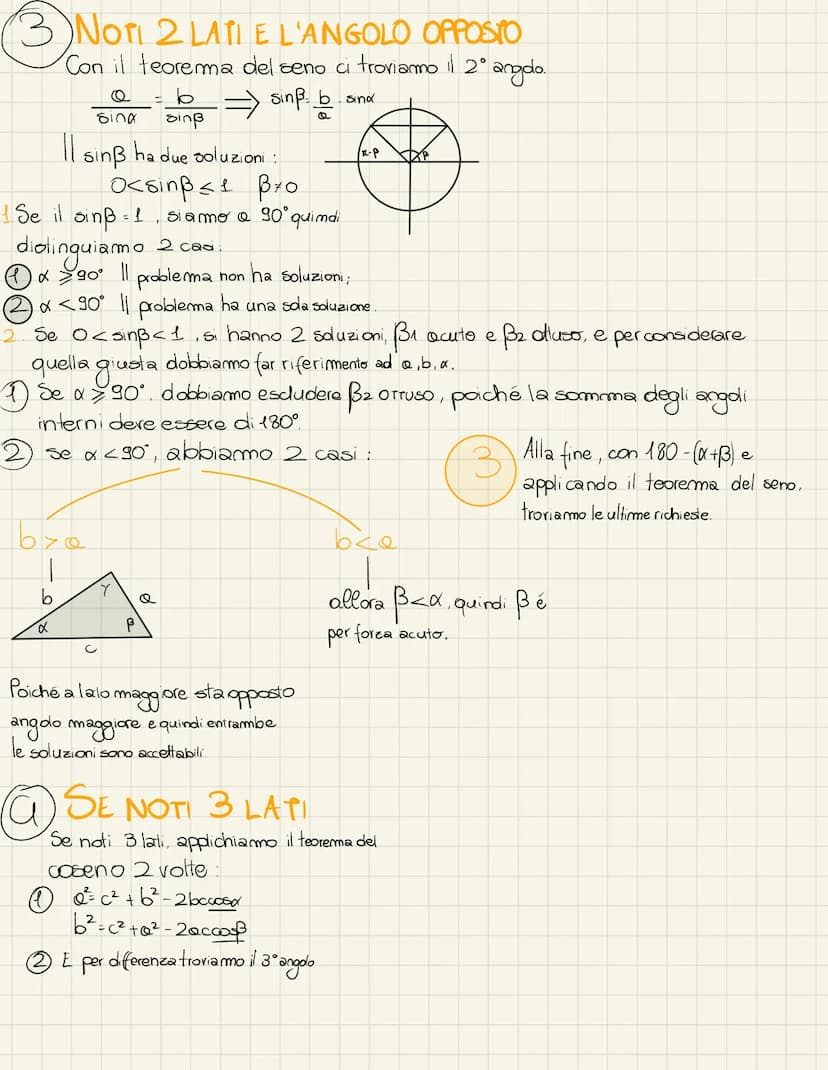 3 NOTI 2 LATI E L'ANGOLO OPPOSTO
Con il teorema del seno ci troviamo il 2° angolo.
a/sinα = b/sinβ ⟹ sinβ = b/a · sinα
π-β β
Il sinβ ha due soluzioni :
0<sinβ≤1 β≠0
1 Se il sinβ = 1, siamo a 90° quindi
distinguiamo 2 casi.
1 α ≥90° Il problema non ha soluzioni;
2 α <90° Il problema ha una sola soluzione.
2. Se 0<sinβ<1, si hanno 2 soluzioni, β1 acuto e β2 ottuso, e per considerare
quella giusta dobbiamo far riferimento ad a, b, α.
1) Se α ≥90°. dobbiamo escludere β2 ottuso, poiché la somma degli angoli
interni deve essere di 180°.
2) Se α <90°, abbiamo 2 casi :
b>a
b<a
b γ a
α β
c
allora β<α, quindi β é
per forza acuto.
Poiché a lato maggiore sta opposto
angolo maggiore e quindi entrambe
le soluzioni sono accettabili.
3 Alla fine, con 180-(α+β) e
applicando il teorema del seno,
troviamo le ultime richieste.
a SE NOTI 3 LATI
Se noti 3 lati, applichiamo il teorema del
coseno 2 volte :
1 a²=c²+b²-2bccosα
b²=c²+a²-2accosβ
2 E per differenza troviamo il 3° angolo